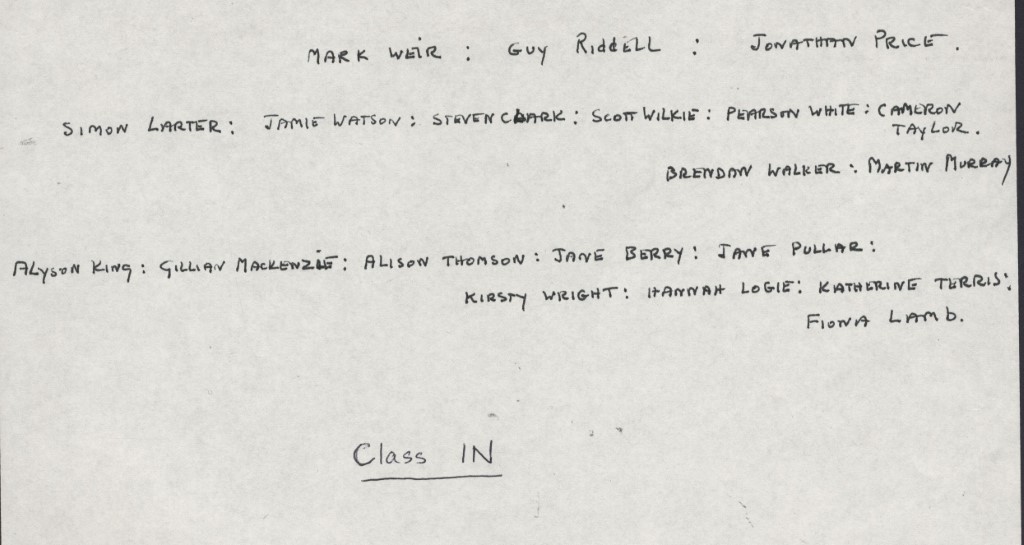 MARK WEIR : GUY RIDDELL : JONATHAN PRICE.
SIMON LARTER : JAMIE WATSON : STEVEN CLARK : SCOTT WILKIE : PEARSON WHITE : CAMERON
TAYLOR.
BRENDAN WALKER : MARTIN MURRAY
ALYSON KING : GILLIAN MACKENZIE : ALISON THOMSON : JANE BERRY : JANE PULLAR :
KIRSTY WRIGHT : HANNAH LOGIE : KATHERINE TERRIS :
FIONA LAMB.
Class IN